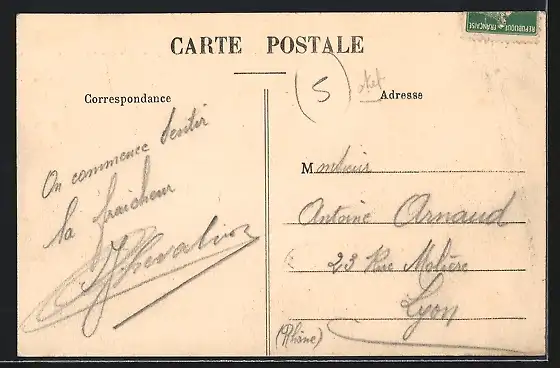 RÉPUBLIQUE FRANÇAISE
CARTE POSTALE
Correspondance
5
Adresse
On commence sentir
la fraicheur
JChevalier
Monsieur
Antoine Arnaud
23 Rue Molière
Lyon
(Rhône)